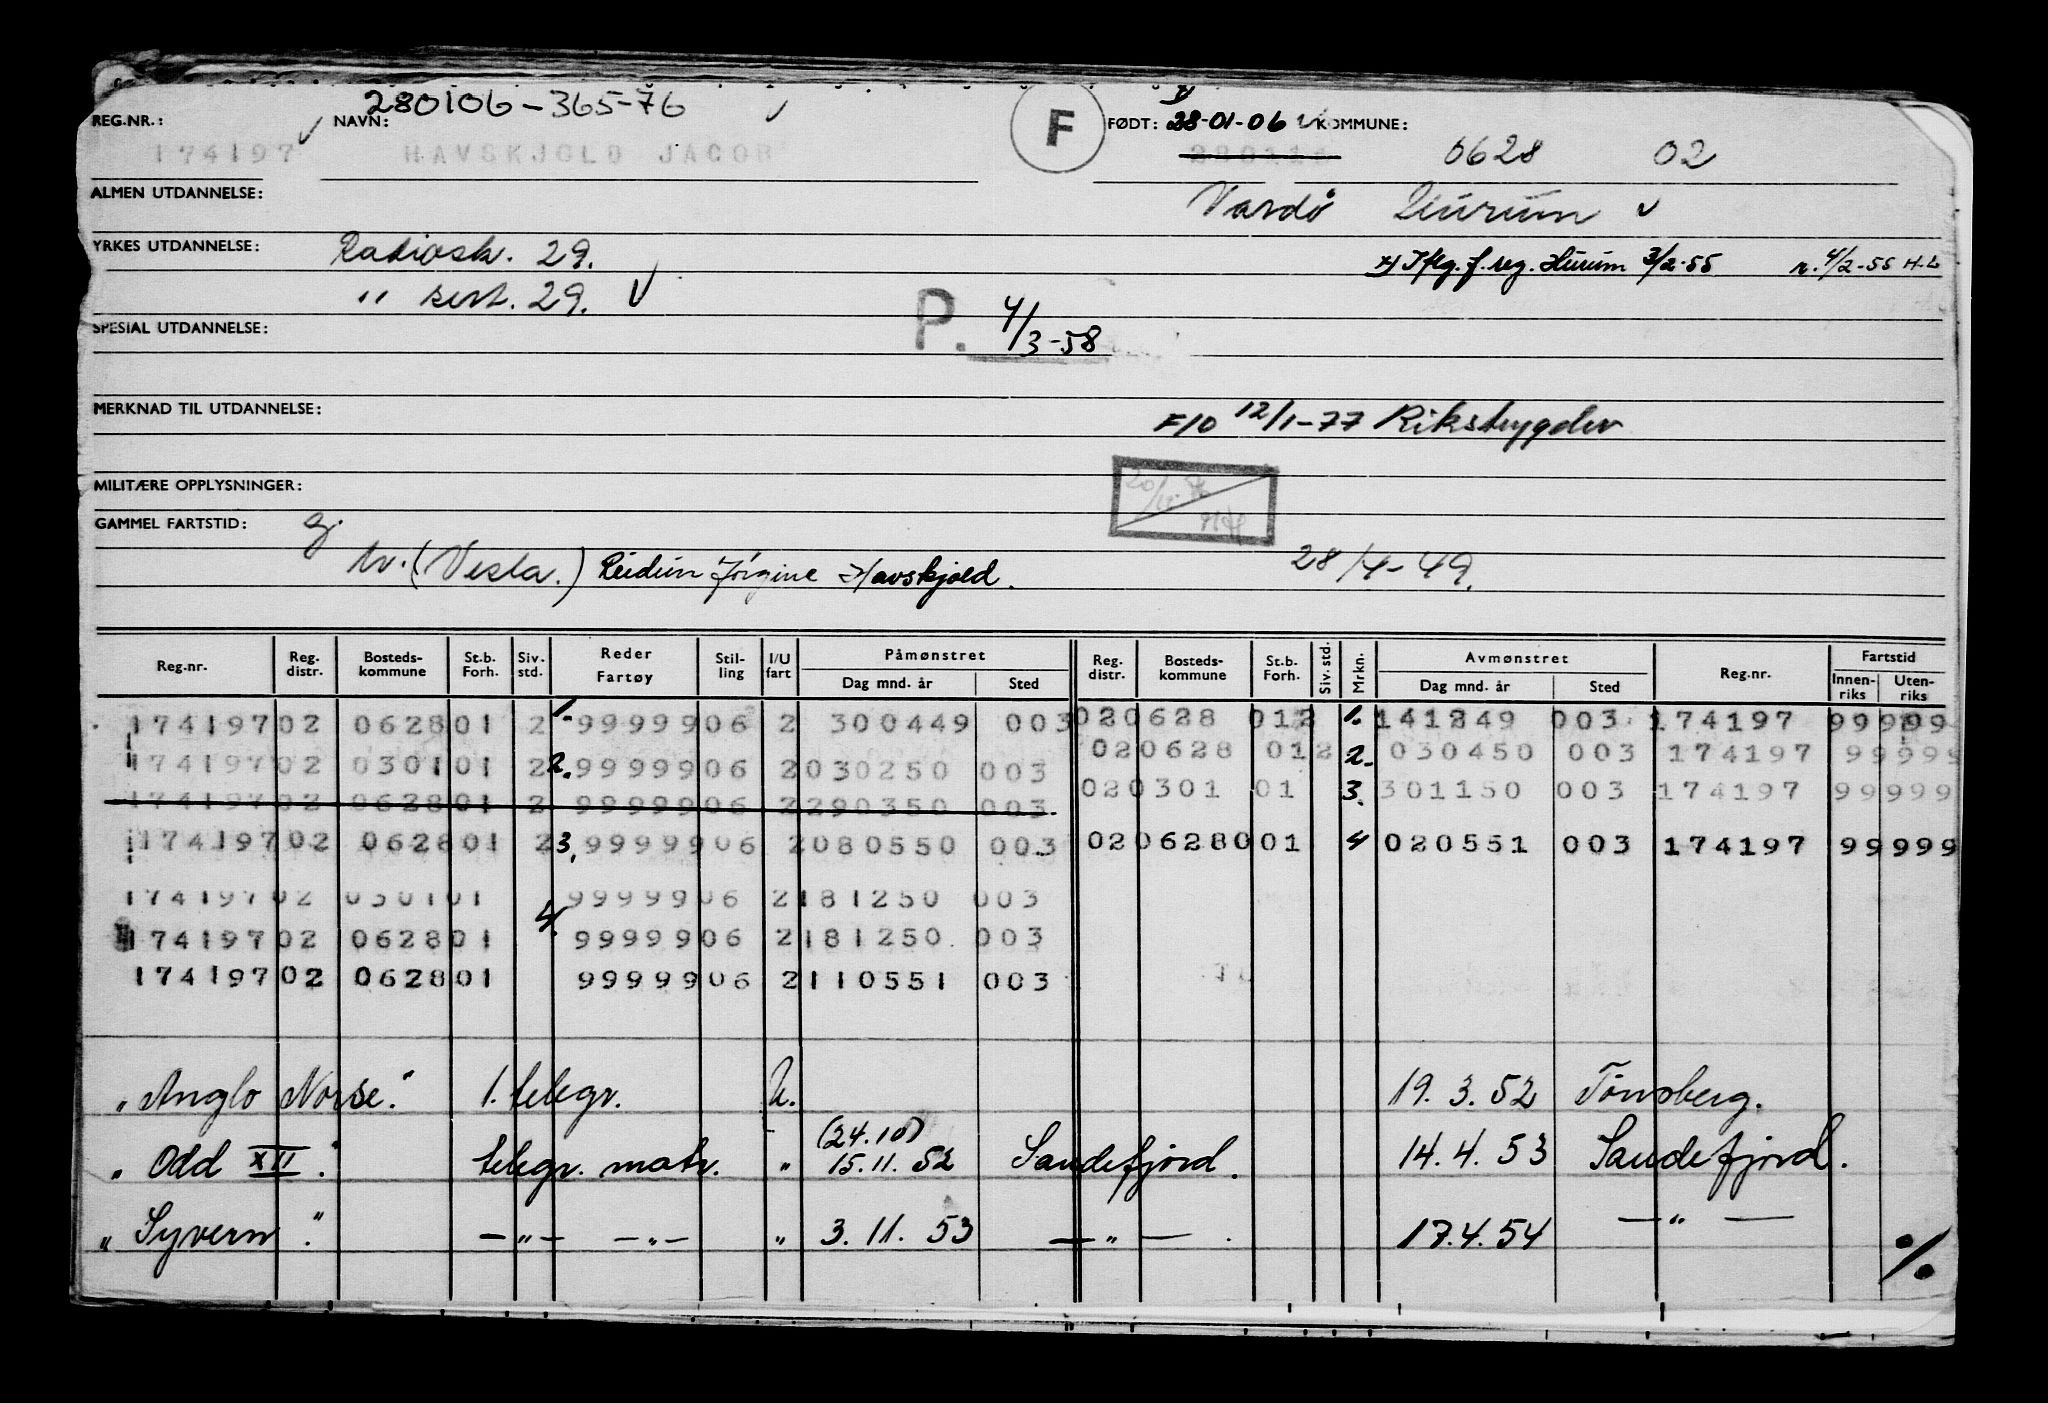 280106-365-76 ✓
REG.NR.: ✓ NAVN: F FØDT: 28-01-06 ✓ KOMMUNE:
174197 HAVSKJOLD JACOB 0628 02
ALMEN UTDANNELSE: Vardø Hurum ✓
YRKES UTDANNELSE: Radiosk. 29. x) Iflg. f. reg. Hurum 3/2-55 r. 4/2-55 H.L
" sert. 29. ✓
P. 4/3-58
SPESIAL UTDANNELSE:
MERKNAD TIL UTDANNELSE: F/O 12/1-77 Rikstrygdev
MILITÆRE OPPLYSNINGER:
GAMMEL FARTSTID: g.
(Vesla.) Reidun Jörgine Havskjold. 28/4-49.
Reg.nr. Reg. distr. Bosteds- kommune St.b. Forh. Siv. std. Reder Fartøy Stil- ling I/U fart Påmønstret Dag mnd. år Sted Reg. distr. Bosteds- kommune St.b. Forh. Siv. std. Mrkn. Avmønstret Dag mnd. år Sted Reg.nr. Fartstid Innen- riks Uten- riks
174197 02 0628 01 2 1. 99999 06 2 300449 003 02 0628 01 2 1. 141249 003 174197 99999
174197 02 0301 01 2 2. 99999 06 2 030250 003 02 0628 01 2 2. 030450 003 174197 99999
174197 02 0628 01 2 99999 06 2 290350 003 02 0301 01 3. 301150 003 174197 99999
174197 02 0628 01 2 3. 99999 06 2 080550 003 02 0628 001 4 020551 003 174197 99999
174197 02 0301 01 99999 06 2 181250 003
4.
174197 02 0628 01 99999 06 2 181250 003
174197 02 0628 01 99999 06 2 110551 003
"Anglo Norse." 1. telegr. U. 19. 3. 52 Tønsberg.
"Odd XII." telegr. matr. " (24.10) 15.11. 52 Sandefjord. 14. 4. 53 Sandefjord.
"Syvern". —"— —"— " 3. 11. 53 —"—. 17.4.54 —"— ·/.